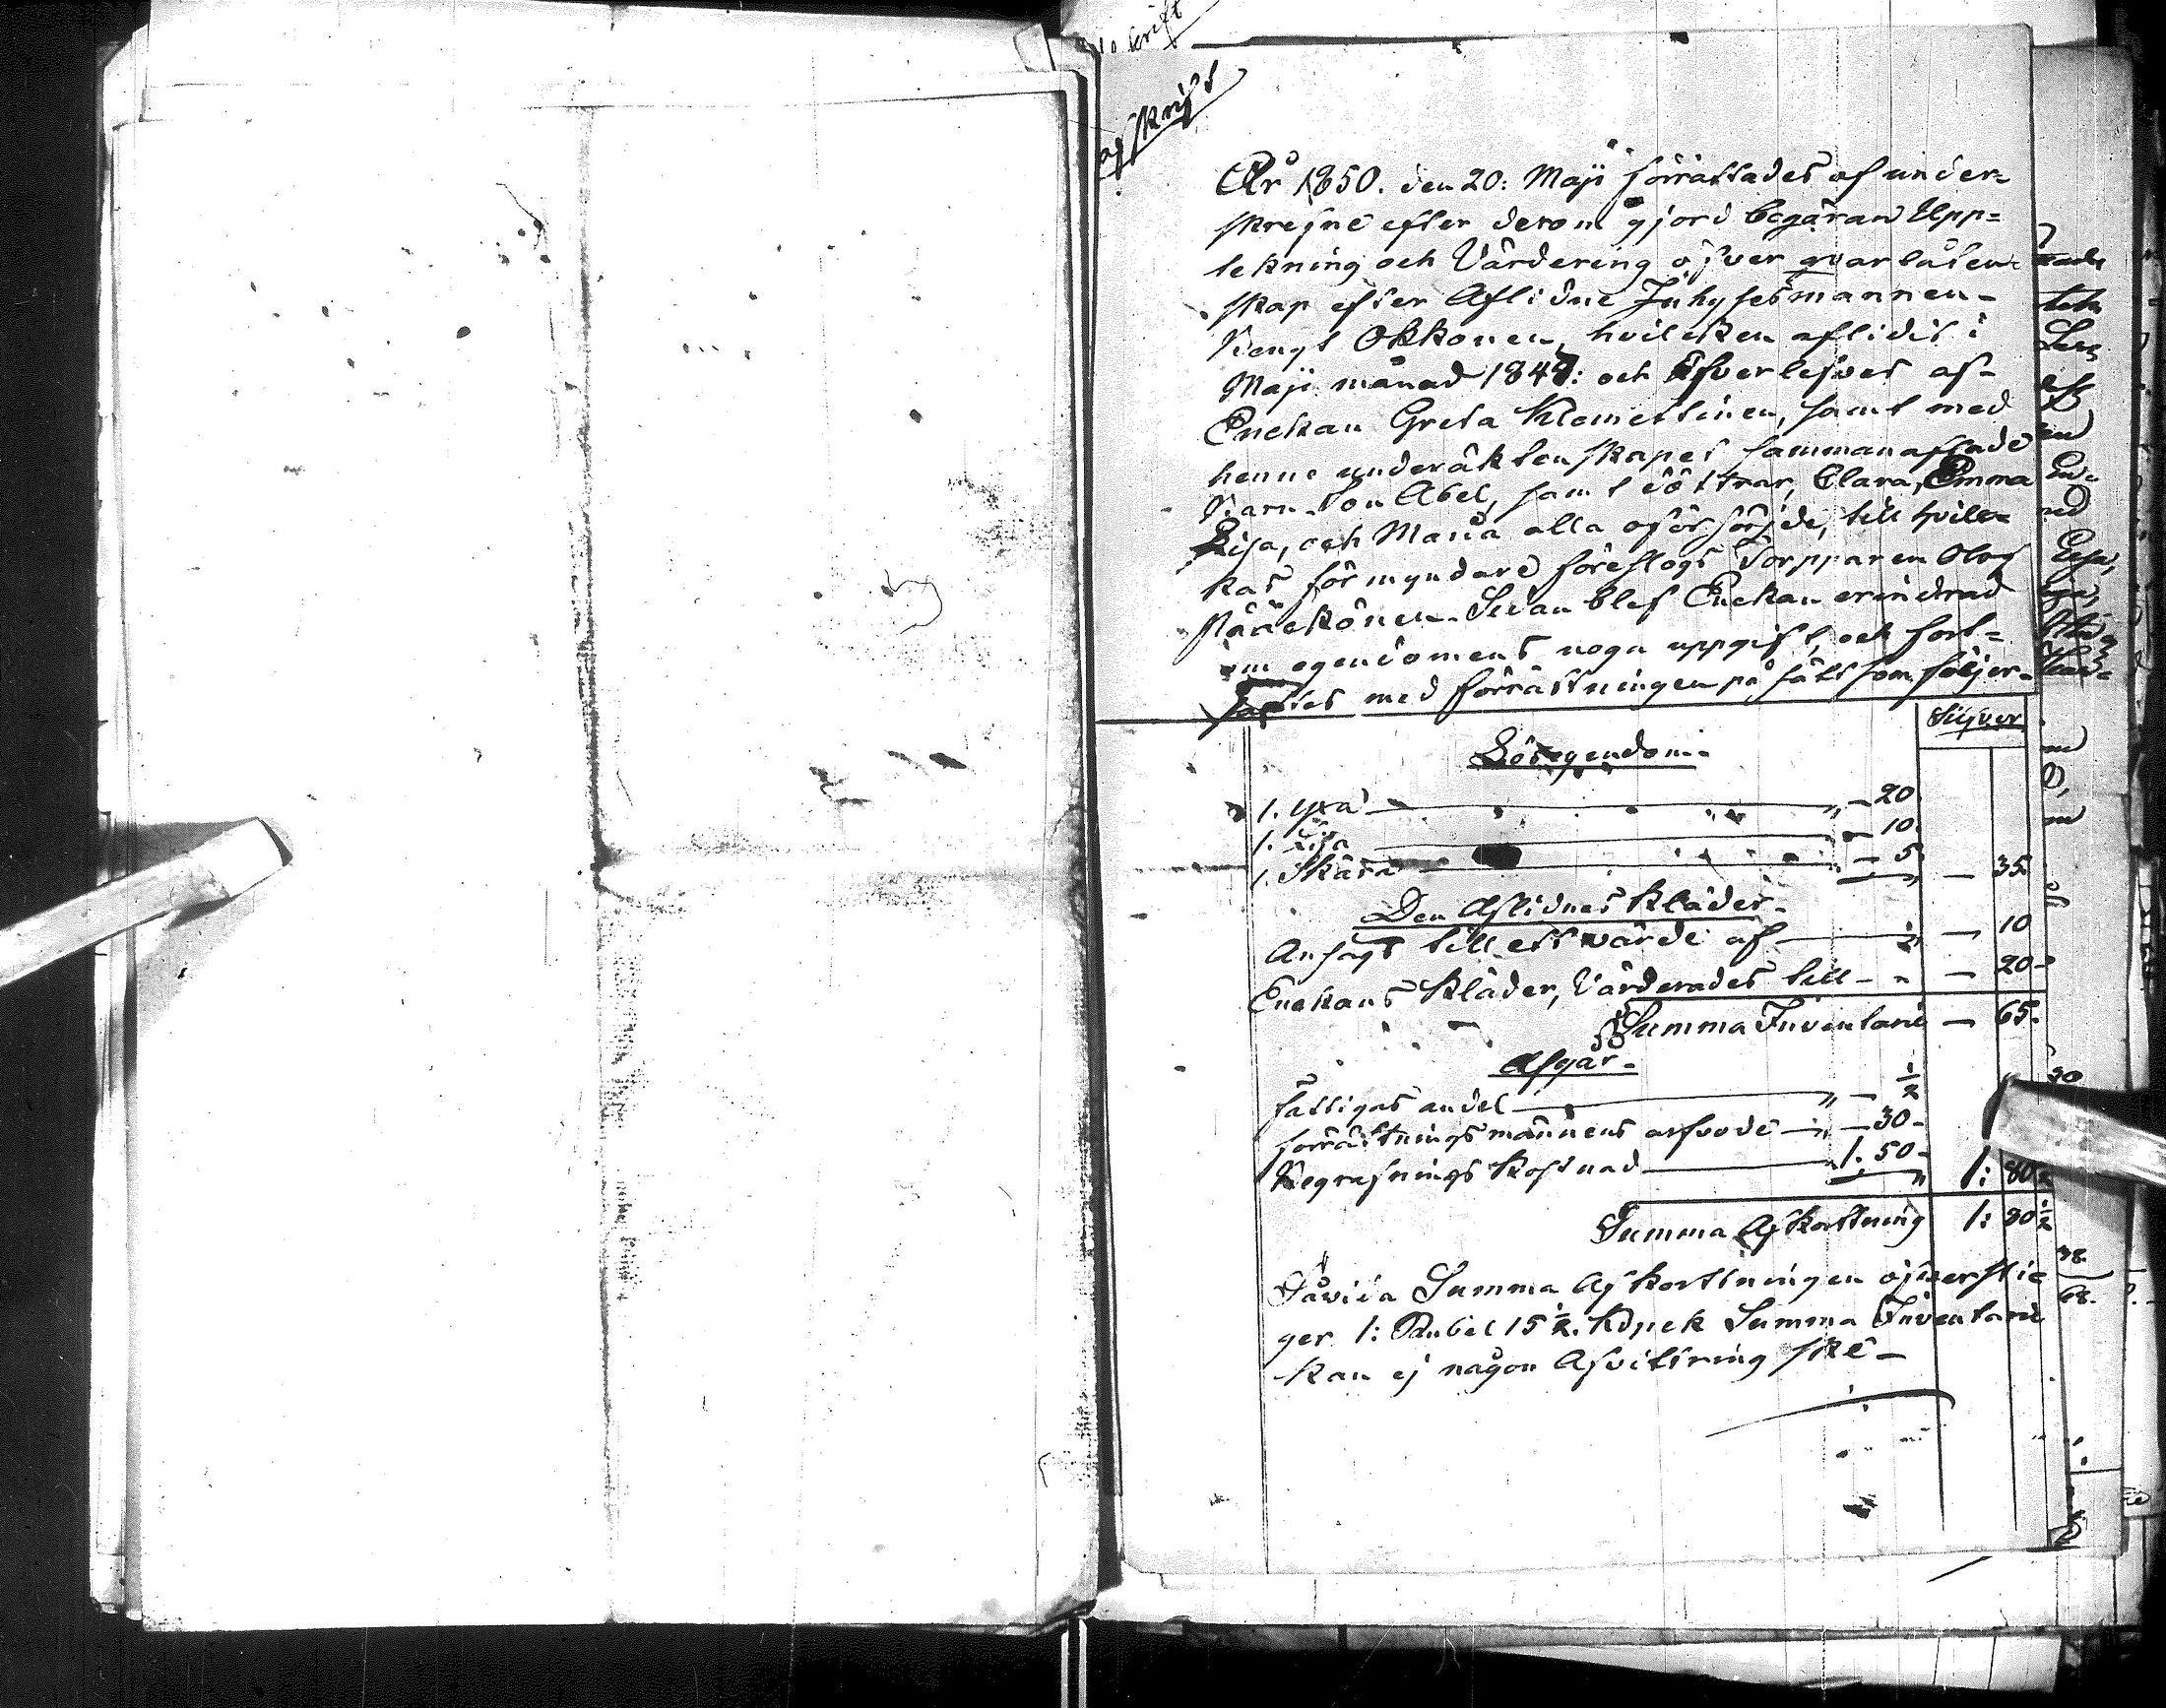 afskrift
År 1850. den 20: Maji förrättades af under=
skrefne efter derom gjord begäran Upp=
tekning och Värdering öfver qvarlåten=
skap efter Aflidne Inhysesmannen
Bengt Okkonen, hvilcken aflidit i
Maji månad 1849: och Efverlefves af
Enckan Greta Klemettinen, samt med
henne under äktenskapet sammanaflade
Barn. Son Abel, samt döttrar, Clara, Emma
Lisa, och Maria alla oförsörjde, till hvil=
kas förmyndare föreslogs Torpparen Olof
Pääckönen. Sedan blef Enckan erindrad
om egendomens noga uppgift, och fort=
sattes med förrättningen på sätt som följer.
Silfver
Lösegendom.
1. yxa " 20
1. Lija " 10.
1. Skära " 5 " 35.
Den Aflidnes kläder.
Ansågs till ett värde af " 10
Enckans kläder, Värderades till " 20
Summa Inventarie 65.
Afgår.
Fattigas andel " ½
förrättningsmännens arfvode " 30
Begrafnings kostnad " 1. 50 1: 80 ½
Summa Afkortning 1: 80 ½
Såvida Summa Afkortningen öfverstie
ger 1: Rubel 15 ½. Kopek Summa Inventarie
kan ej någon Afvittring ske